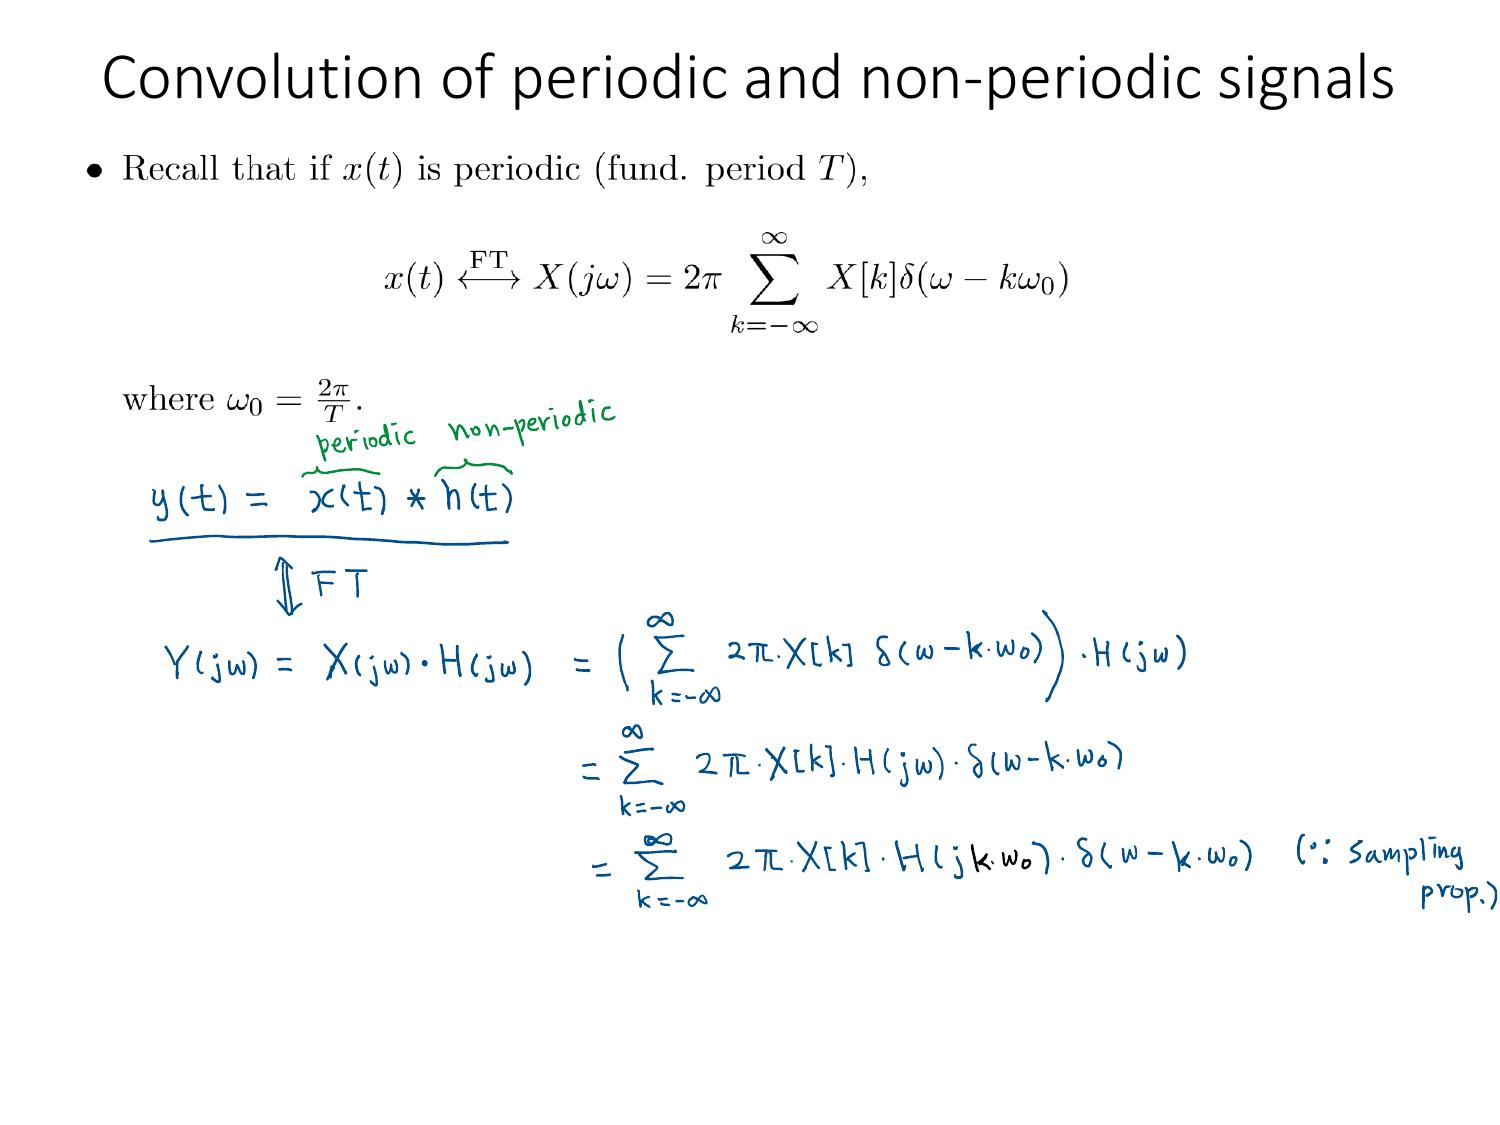 Convolution of periodic and non-periodic signals
• Recall that if x(t) is periodic (fund. period T),
x(t) ←FT→ X(jω) = 2π ∑_{k=−∞}^{∞} X[k]δ(ω − kω₀)
where ω₀ = 2π/T.
periodic non-periodic
y(t) = x(t) * h(t)
⇕ FT
Y(jω) = X(jω)·H(jω) = (∑_{k=-∞}^{∞} 2π·X[k] δ(ω-k·ω₀))·H(jω)
= ∑_{k=-∞}^{∞} 2π·X[k]·H(jω)·δ(ω-k·ω₀)
= ∑_{k=-∞}^{∞} 2π·X[k]·H(jk·ω₀)·δ(ω-k·ω₀) (∵ sampling
prop.)